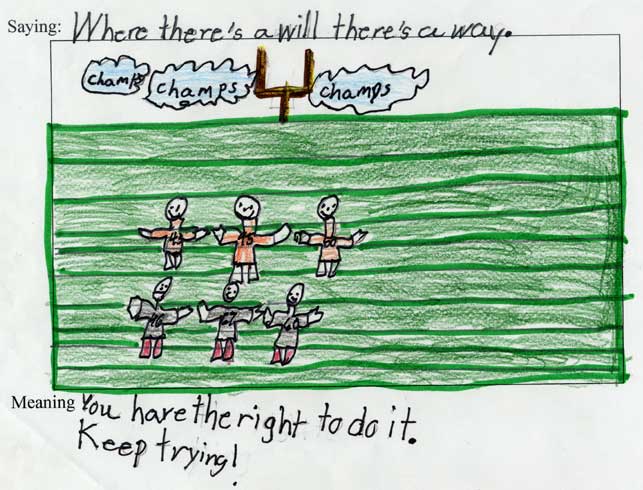 Saying: Where there's a will there's a way.
champs champs champs
43 15 60
67
Meaning You have the right to do it.
Keep trying!